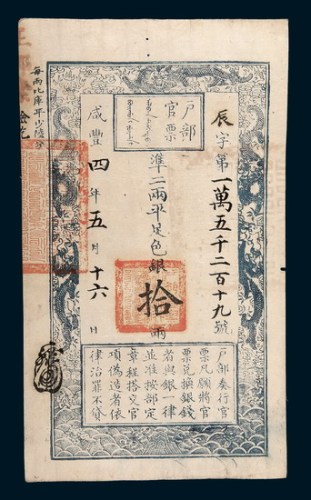 戶部
官票
辰字第一萬五千二百十九號
準二兩平足色銀拾兩
咸豐四年五月十六日
每兩比庫平少陸分
戶部奏行官
票凡願將官
票兌換銀錢
者與銀一律
並准按部定
章程搭交官
項偽造者依
律治罪不貸